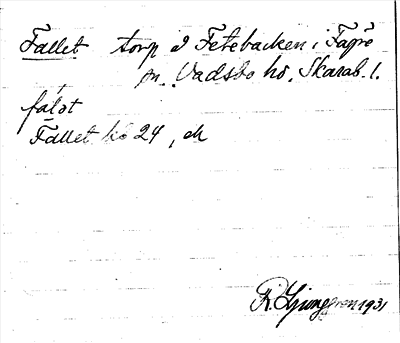 Fallet torp å Fetebacken i Fågrē
sn. Vadsbo hd. Skarab. l.
fál̀ət
Fallet hfs 24, ek
R. Ljunggren 1931